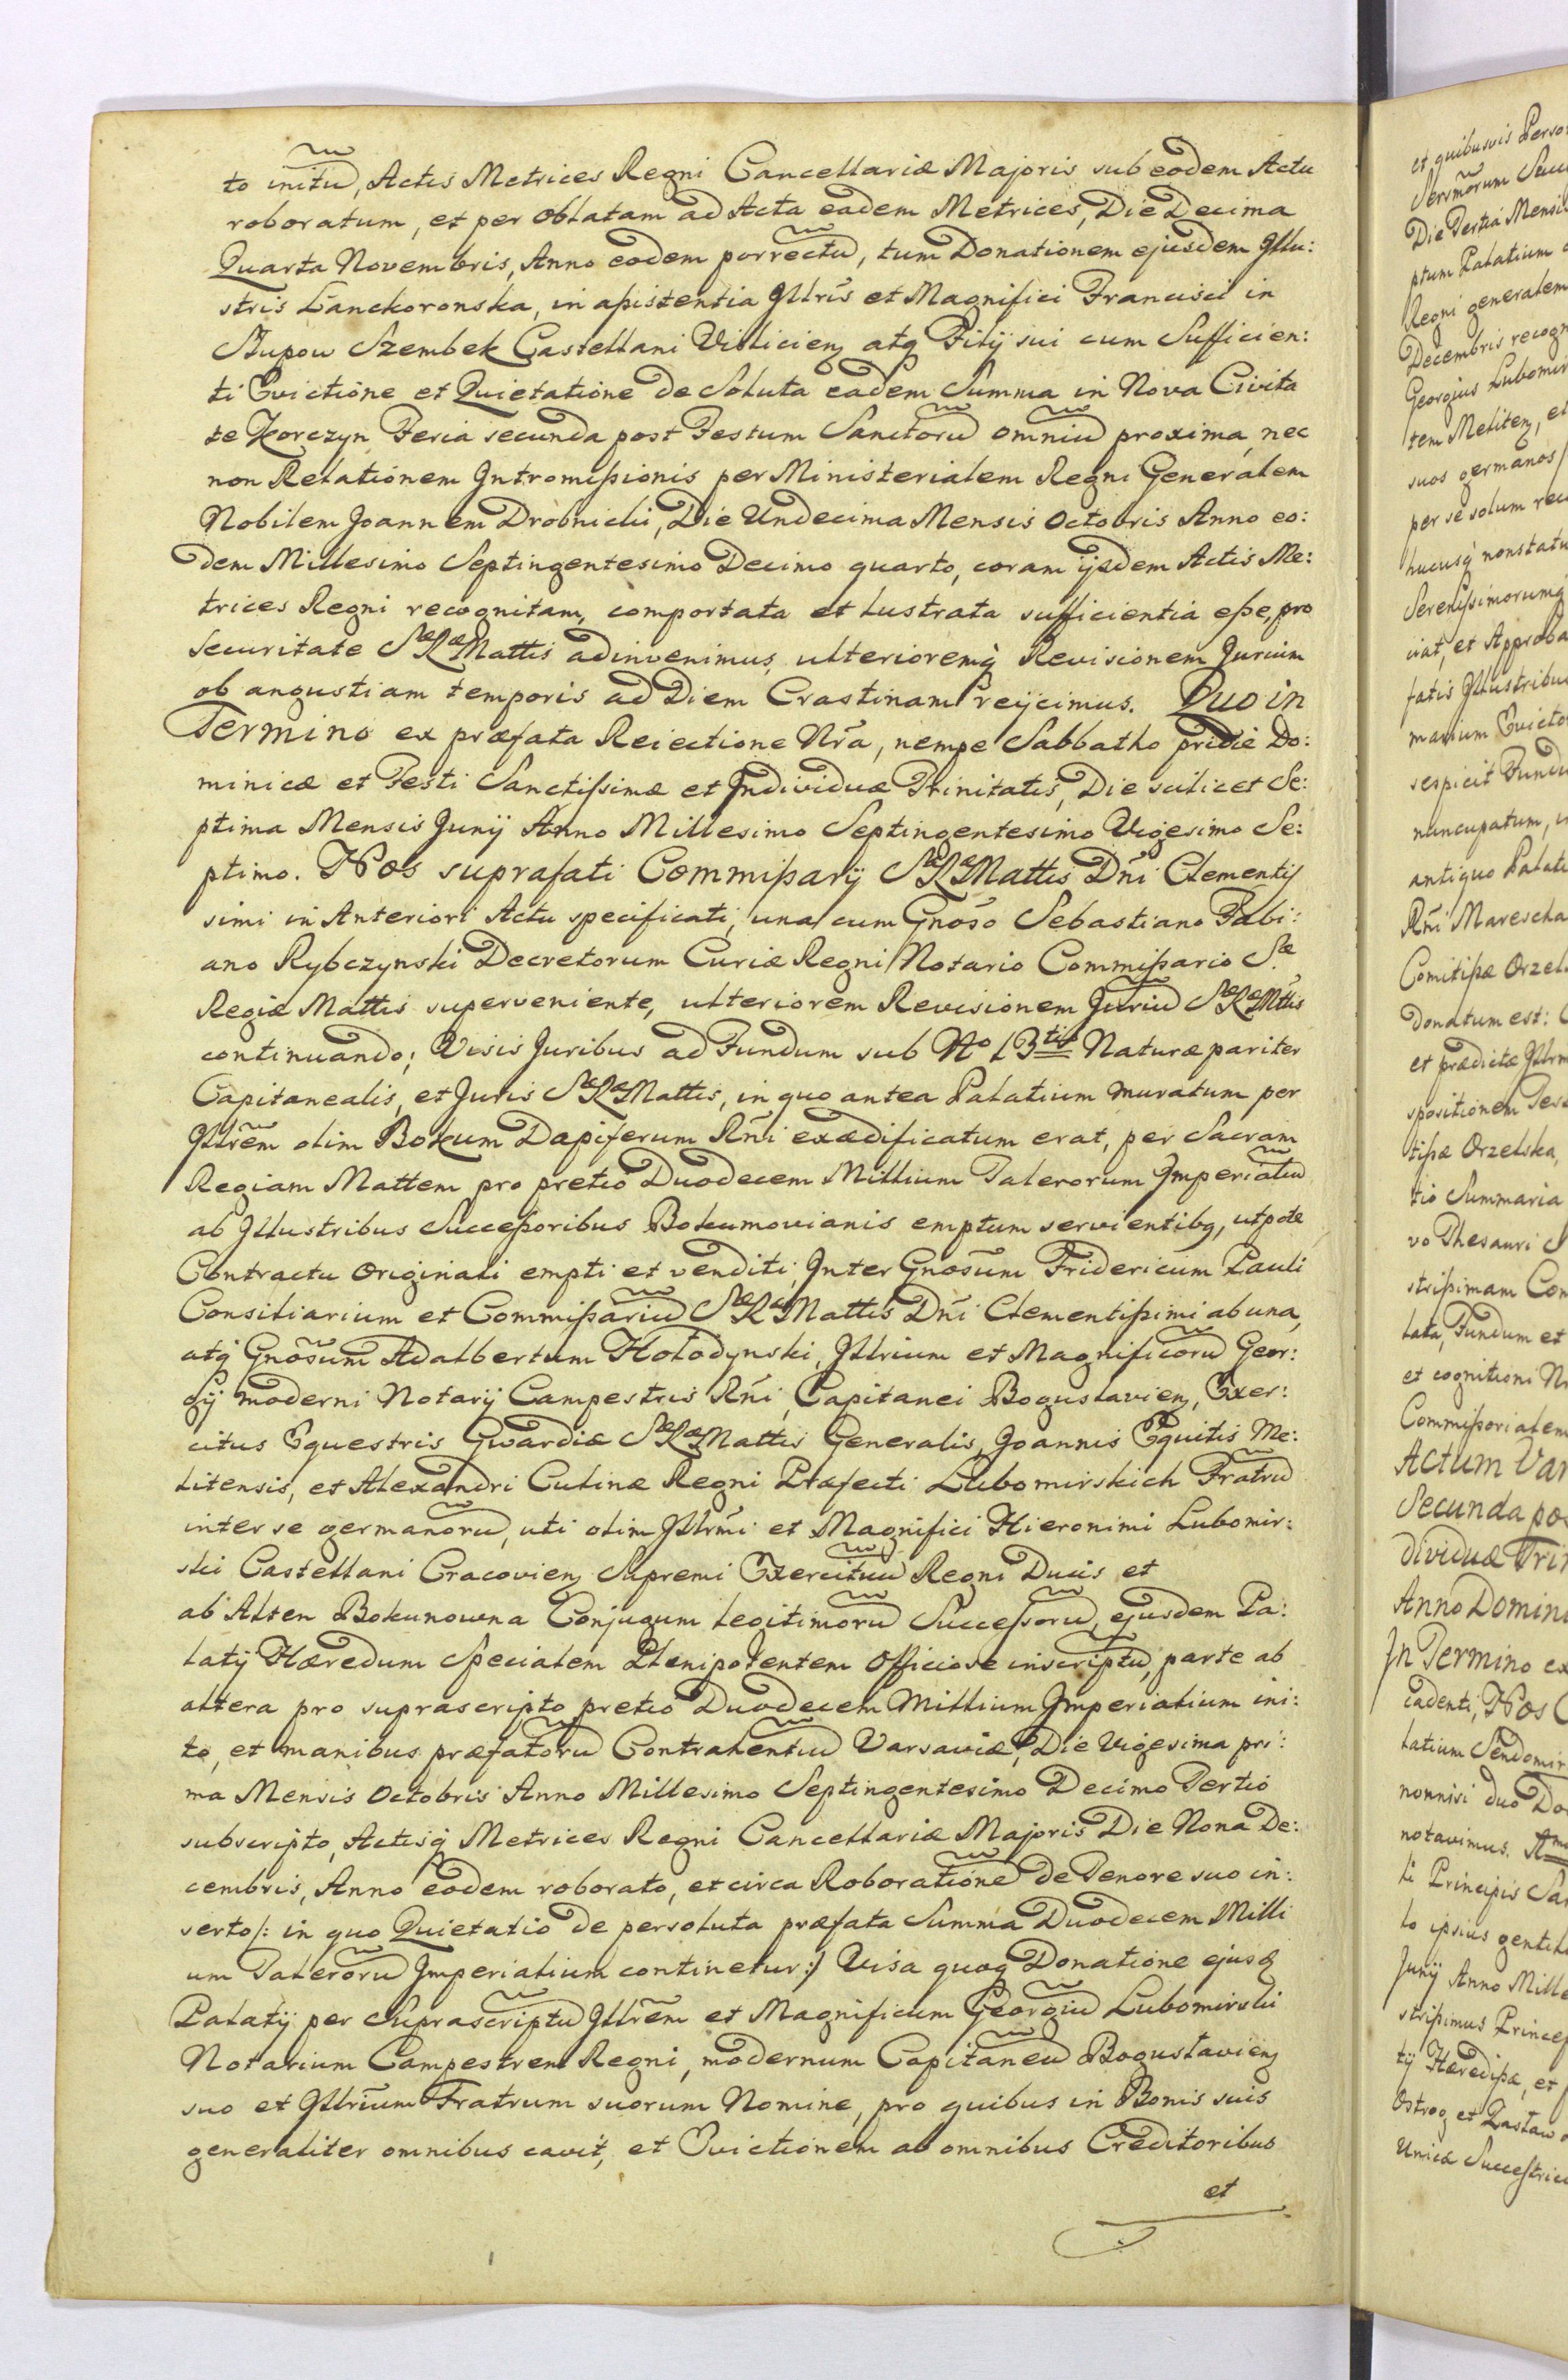 to initũ, Actis Metrices Regni Cancellariæ Majoris sub eodem Actu
roboratum, et per Oblatam ad Acta eadem Metrices, Die Decima
Quarta Novembris, Anno eodem porrectũ, tum Donationem ejusdem Illu:
stris Lanckoronska, in aßistentia Illris̃ et Magnifici Francisci in
Słupow Szembek Castellani Vislicien̨ atq̨ Filij sui cum Sufficien:
ti Evictione et Quietatione de Soluta eadem Summa in Nova Civita
te Korczyn Feria secunda post Festum Sanctorũ omniũ proxima, nec
non Relationem Intromißionis per Ministerialem Regni Generalem
Nobilem Joannem Drobnicki, Die Undecima Mensis Octobris Anno eo:
dem Millesimo Septingentesimo Decimo quarto, coram ijsdem Actis Me:
trices Regni recognitam, comportata et lustrata sufficientia eße, pro
securitate Sæ Ræ Mattis adinvenimus, ulterioremq̨ Revisionem Jurium
ob angustiam temporis ad Diem Crastinam reijcimus. Quo in
Termino ex præfata Reiectione Nr̃a, nempe Sabbatho pridie Do:
minicæ et Festi Sanctißimæ et Individuæ Trinitatis, Die scilicet Se:
ptima Mensis Junij Anno Millesimo Septingentesimo Vigesimo Se:
ptimo. Nos suprafati Commißarij Sæ Ræ Mattis Dñi Clementis
simi in Anteriori Actu specificati, una cum Gnõso Sebastiano Fabi:
ano Rybczynski Decretorum Curiæ Regni Notario Commißario Sæ
Regiæ Mattis superveniente, ulteriorem Revisionem Juriũ Sæ Ræ Mttis
continuando; Visis Juribus ad Fundum sub No 13tio Naturæ pariter
Capitanealis, et Juris Sæ Ræ Mattis, in quo antea Palatium muratum per
Illrẽm olim Bokum Dapiferum Rñi exædificatum erat, per Sacram
Regiam Mattem pro pretio Duodecem Millium Talerorum Imperialiũ
ab Illustribus Succeßoribus Bokumovianis emptum servientibq̨, utpote
Contractu Originali empti et venditi, Inter Gnosũm Fridericum Pauli
Consiliarium et Commißariũ Sæ Ræ Mattis Dñi Clementißimi ab una,
atq̨ Gnosũm Adalbertum Hołodynski, Illrium et Magnificorũ Geor:
gij moderni Notarij Campestris Rñi, Capitanei Boguslavien̨, Exer:
citus Equestris Gwardiæ Sæ Ræ Mattis Generalis, Joannis Equitis Me:
litensis, et Alexandri Culinæ Regni Præfecti Lubomirskich Fratrũ
inter se germanorũ, uti olim Illrm̃i et Magnifici Hieronimi Lubomir:
ski Castellani Cracovien̨ Supremi Exercituũ Regni Ducis et
ab Alten Bokunowna Conjugum legitimorũ Succeßorũ, ejusdem Pa:
latij Hæredum Specialem Plenipotentem Officiose inscriptũ, parte ab
altera pro suprascripto pretio Duodecem Millium Imperialium ini:
to, et manibus præfatorũ Contrahentiũ Varsaviæ, Die Vigesima pri:
ma Mensis Octobris Anno Millesimo Septingentesimo Decimo Tertio
subscripto, Actisq̨ Metrices Regni Cancellariæ Majoris Die Nona De:
cembris, Anno eodem roborato, et circa Roborationẽ de Tenore suo in:
serto /: in quo Quietatio de persoluta præfata Summa Duodecem Milli
um Talerorũ Imperialium continetur :/ Visa quoq̨ Donatione ejusd̨
Palatij per Suprascriptũ Illrẽm et Magnificum Georgiũ Lubomirski
Notarium Campestrem Regni, modernum Capitaneũ Boguslavien̨
suo et Illrĩum Fratrum suorum Nomine, pro quibus in Bonis suis
generaliter omnibus cavit, et Evictionem ab omnibus Creditoribus
et
et quibusvis Perso
Sermõrum Succ
Die Tertia Mensi
ptum Palatium
Regni generalem
Decembris recogn
Georgius Lubomir
tem Meliten̨, et
suos germanos
per se solum rec
hucusq̨ nonstatu
Serenißimorumq̨
viat, et Approba
fatis Illustribus
marium Evicto
respicit Fundu
nuncupatum, i
antiquo Palati
Rñi Marescha
Comitißæ Orzels
Donatum est:
et prædictæ Illrm
spositionem Tes
tißæ Orzelska,
tio Summaria
vo Thesauri S
strißimam Com
lata, Fundum et
et cognitioni N
Commißorialem
Actum Var
Secunda po
dividuæ Tri
Anno Domin
In Termino ex
cadenti, Nos C
latium Sendomir
nonnisi duo Do
notavimus.
li Principis Sa
lo ipsius gentil
Junij Anno Mille
strißimus Princep
tij Hæredißa, et
Ostrog et Zasław
Unica Succeßtric